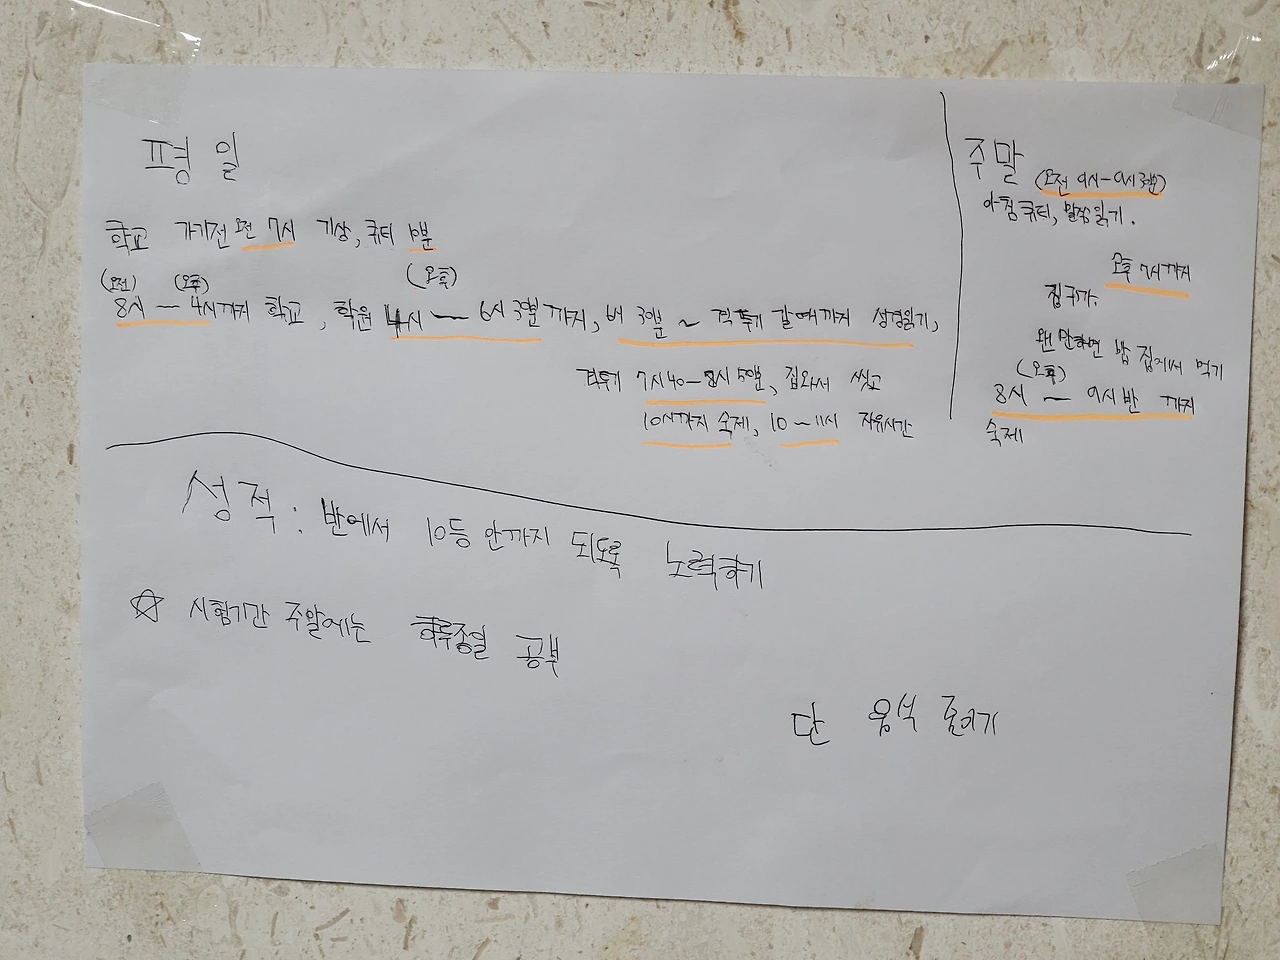 평일
학교 가기전 오전 7시 기상, 큐티 10분
(오전) (오후) (오후)
8시 ~ 4시까지 학교, 학원 4시 ~ 6시 30분 까지, 6시 30분 ~ 격투기 갈 때까지 성경읽기,
격투기 7시40 - 8시 50분, 집와서 씻고
10시까지 숙제, 10 ~ 11시 자유시간
주말 (오전 9시-9시 30분)
아침 큐티, 말씀읽기.
오후 7시까지
집귀가.
왠만하면 밥 집에서 먹기
(오후)
8시 ~ 9시 반 까지
숙제
성적 : 반에서 10등 안까지 되도록 노력하기
☆ 시험기간 주말에는 하루종일 공부
단 음식 줄이기